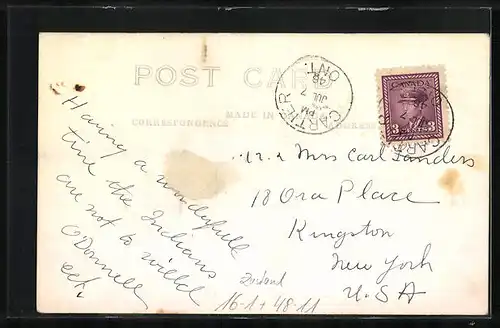 POST CARD
MADE IN
CORRESPONDENCE
ADDRESS
CARTIER
PM
JUL 7
49
ONT.
CANADA
3 3
Having a wonderfull
time the Indians
are not to willd
O'Donnell
ect.
Mr. & Mrs Carl Sanders
18 Ora Place
Kingston
New York
U.S.A
16-1+48-11